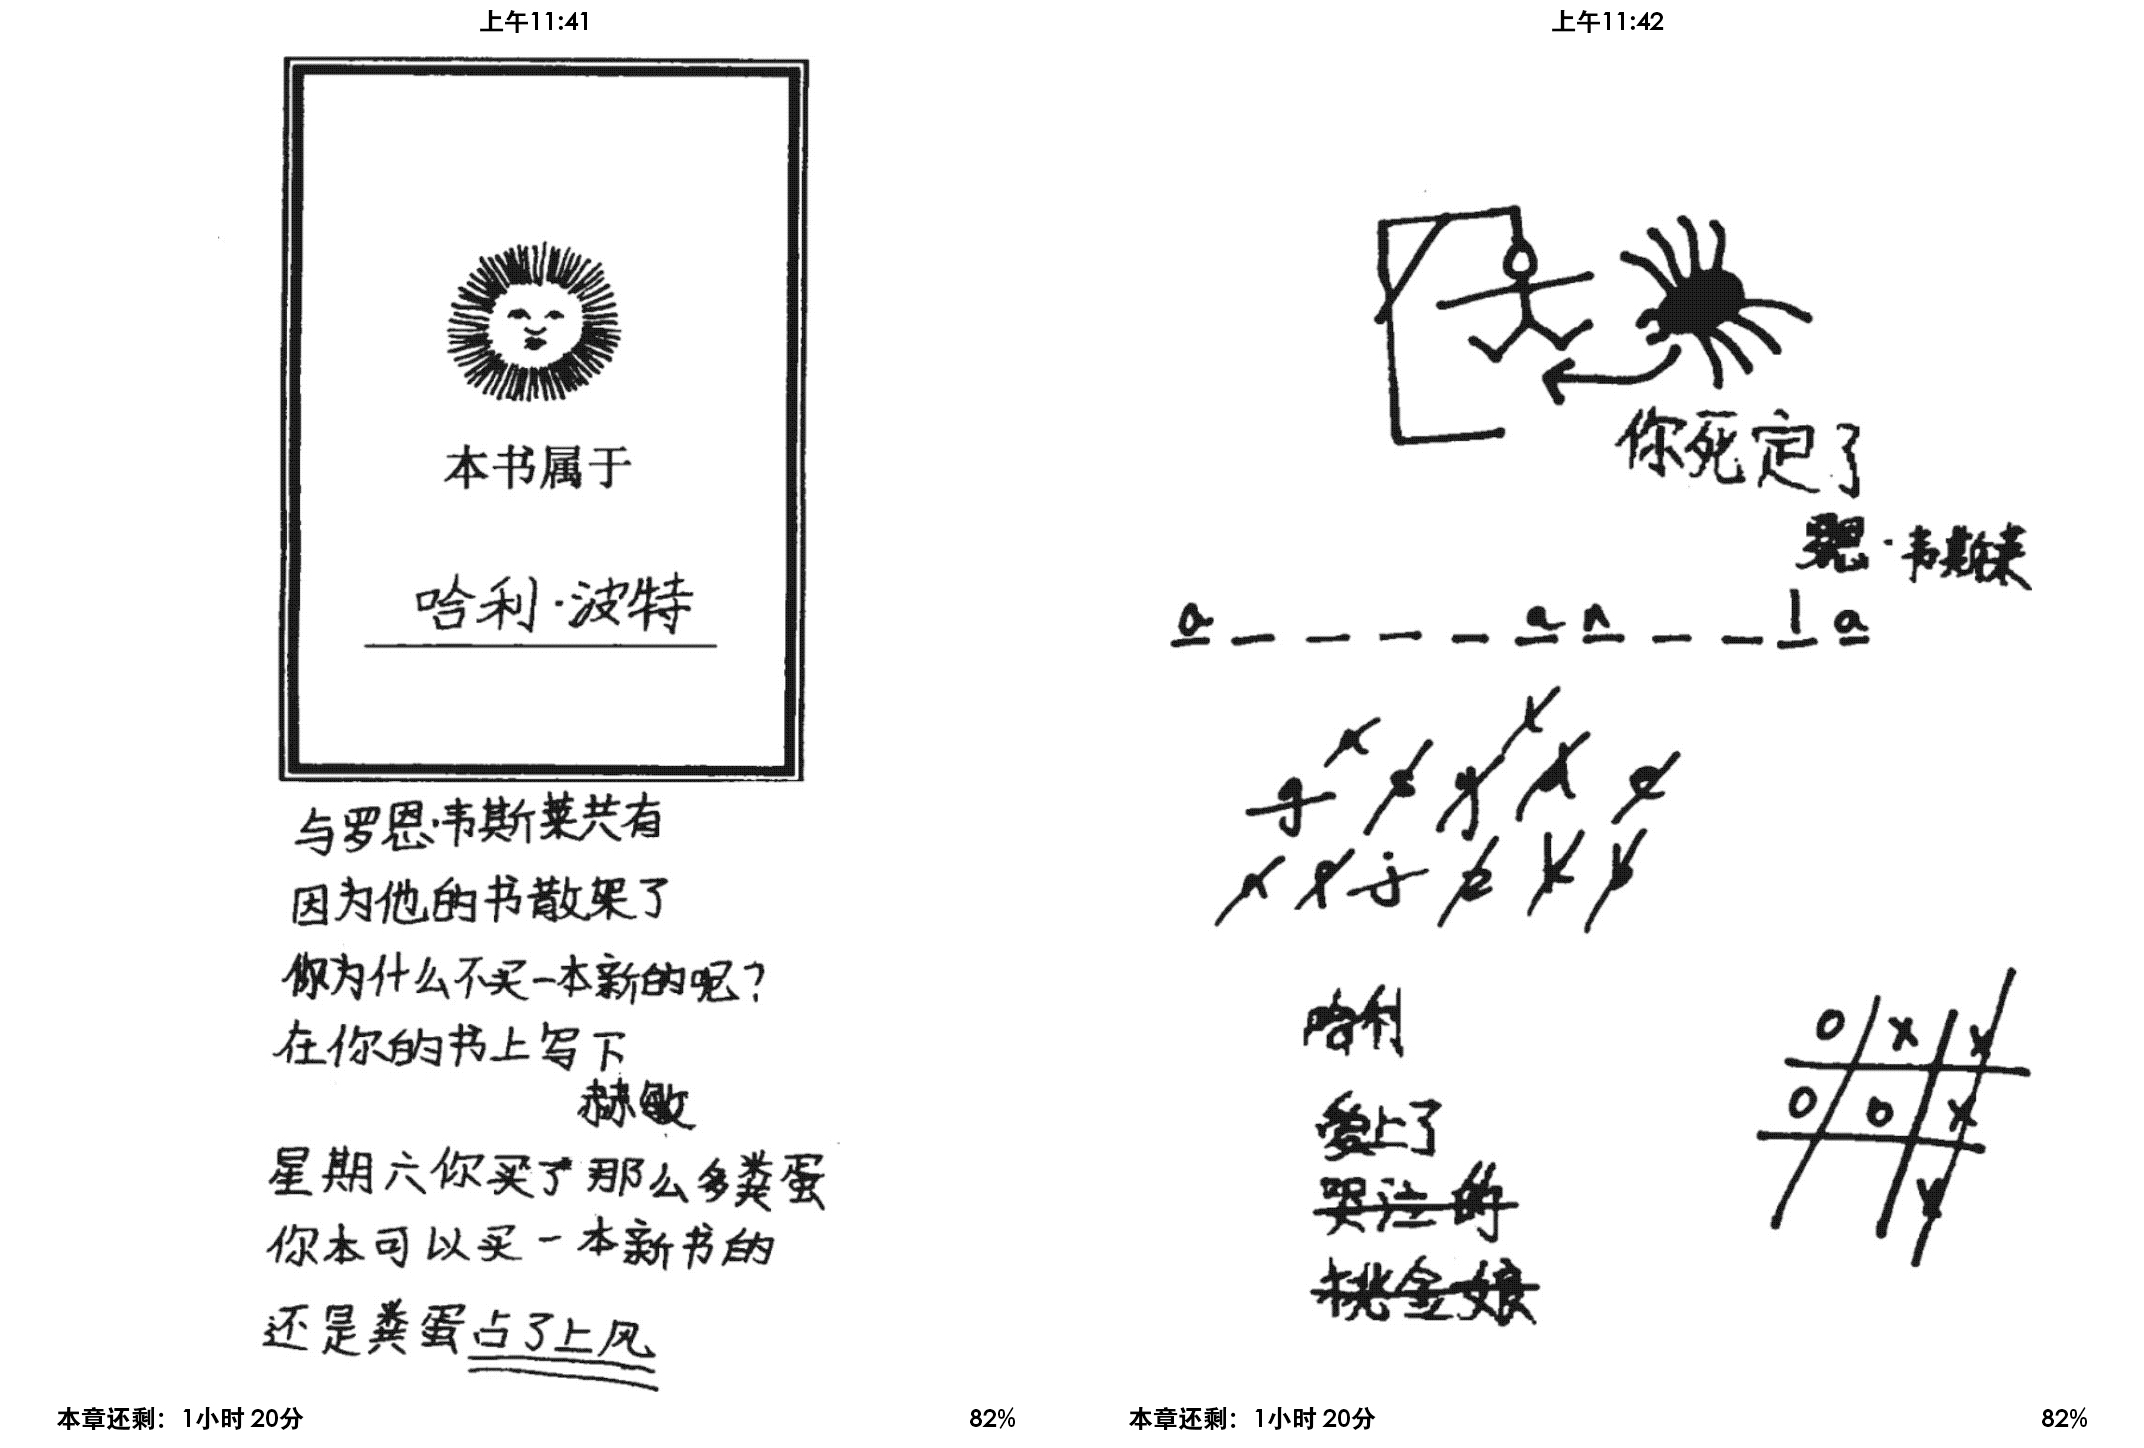 上午11:41
本书属于
哈利·波特
与罗恩·韦斯莱共有
因为他的书散架了
你为什么不买一本新的呢?
在你的书上写下
赫敏
星期六你买了那么多粪蛋
你本可以买一本新书的
还是粪蛋占了上风
本章还剩：1小时 20分
82%
上午11:42
你死定了
·韦斯莱
a _ _ _ _ a n _ _ l a
哈利
爱上了
哭泣的
桃金娘
O X X
O O X
X
本章还剩：1小时 20分
82%